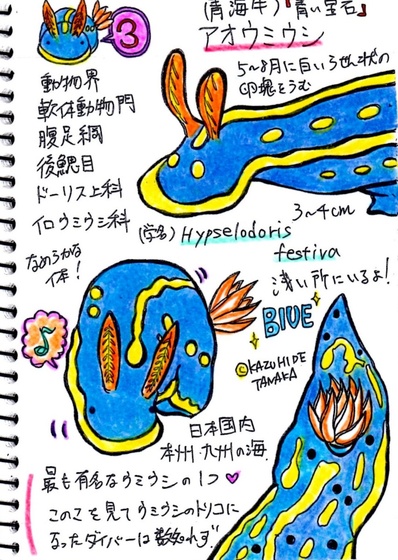 ③
(青海牛)『青い宝石』
アオウミウシ
動物界
軟体動物門
腹足綱
後鰓目
ドーリス上科
イロウミウシ科
なめらかな
体!
5~8月に白いらせん状の
卵塊をうむ
3~4cm
(学名) Hypselodoris
festiva
浅い所にいるよ!
BlUE
©KAZUHIDE
TANAKA
日本国内
本州・九州の海.
最も有名なウミウシの1つ
このこを見てウミウシのトリコに
なったダイバーは数知れず!